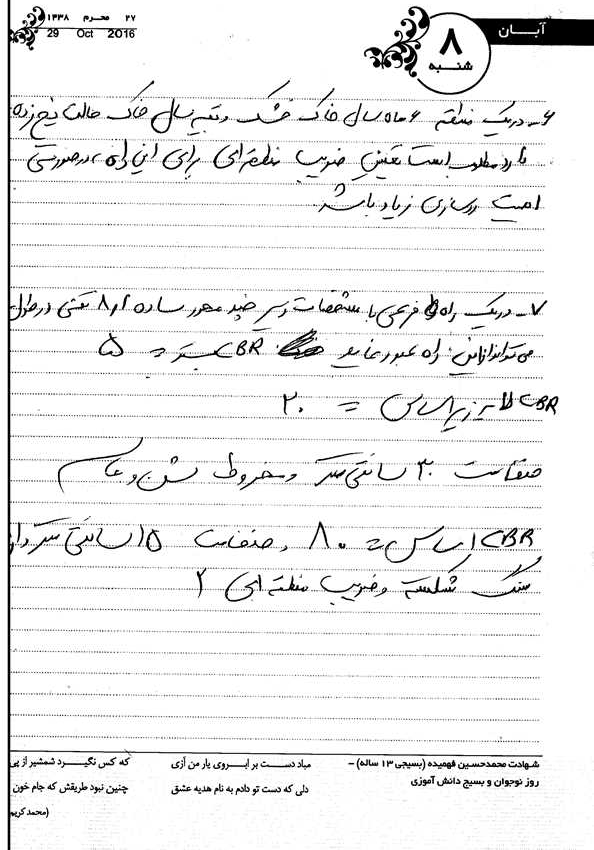 ۲۷ محرم ۱۴۳۸
29 Oct 2016
آبان
۸
شنبه
۶- در یک منطقه ۶ ماه سال خاک خشک و بقیه سال خاک حالت یخ زده
دارد مطلوب است تعیین ضریب منطقه‌ای برای این راه، در صورتی
اهمیت روسازی زیاد باشد.
۷- در یک راه فرعی با مشخصات زیر چند محور ساده ۸٫۲ تنی در طول
می‌تواند از این راه عبور نماید CBR بستر = ۵
CBR زیر اساس = ۲۰
ضخامت ۳۰ سانتی‌متر و مخروط شن و ماسه
CBR اساس = ۸۰ و ضخامت ۱۵ سانتی‌متر و از
سنگ شکسته و ضریب منطقه‌ای ۲
شهادت محمدحسین فهمیده (بسیجی ۱۳ ساله) –
روز نوجوان و بسیج دانش آموزی
مباد دست بر ابروی یار من آزی
که کس نگیرد شمشیر از پی
دلی که دست تو دادم به نام هدیه عشق
چنین نبود طریقش که جام خون
(محمد کریم